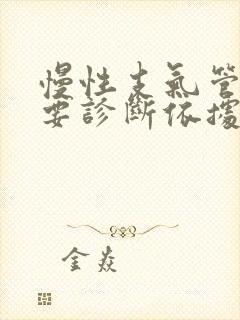 慢性支氣管
要診斷依據
金焱